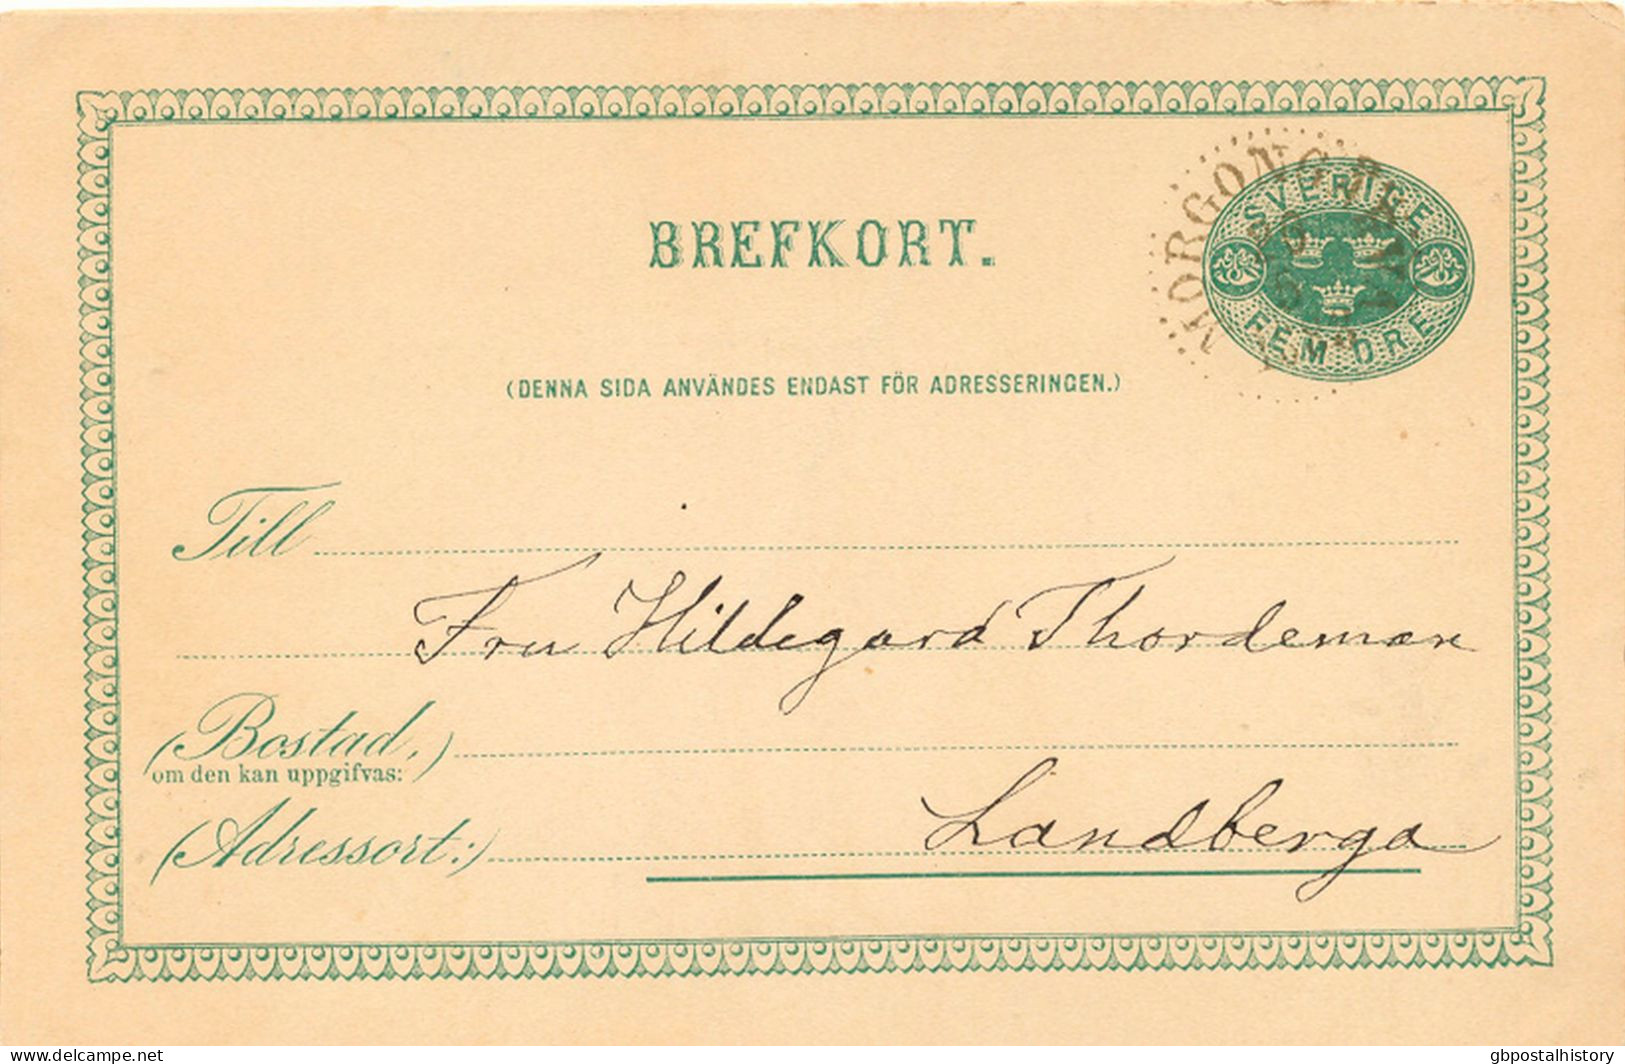 BREFKORT.
SVERIGE
FEM ÖRE
(DENNA SIDA ANVÄNDES ENDAST FÖR ADRESSERINGEN.)
Till
Fru Hildegard Thordeman
(Bostad,)
om den kan uppgifvas:
(Adressort:)
Landberga
delcampe.net
gbpostalhistory